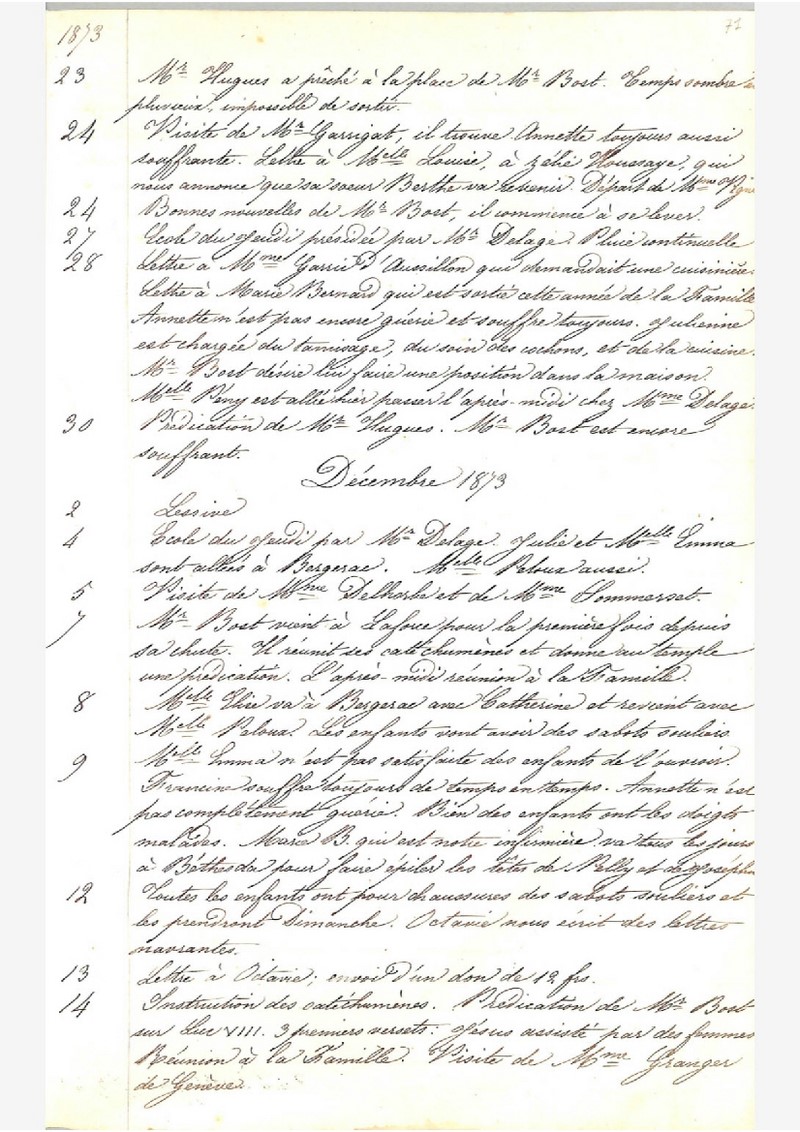 1873
71
23 Mr Hugues a prêché à la place de Mr Bost. Temps sombre
pluvieux, impossible de sortir.
24 Visite de Mr Garrigat, il trouve Annette toujours aussi
souffrante. Lettre à Melle Louise, à Zélie Houssaye, qui
nous annonce que sa soeur Berthe va revenir. Départ de Mme
24 Bonnes nouvelles de Mr Bost, il commence à se lever.
27 Ecole du Jeudi présidée par Mr Delage. Pluie continuelle
28 Lettre à Mme Garric d'Aussillon qui demandait une cuisinière.
Lettre à Marie Bernard qui est sortie cette année de la Famille
Annette n'est pas encore guérie et souffre toujours. Julienne
est chargée du tamisage, du soin des cochons, et de la cuisine.
Mr Bost désire lui faire une position dans la maison.
Melle Pény est allée hier passer l'après-midi chez Mme Delage.
30 Prédication de Mr Hugues. Mr Bost est encore
souffrant.
Décembre 1873
2 Lessive
4 Ecole du Jeudi par Mr Delage. Julie et Melle Emma
sont allées à Bergerac. Melle Peloux aussi.
5 Visite de Mme Delhorbe et de Mme Sommerset.
7 Mr Bost vient à Laforce pour la première fois depuis
sa chute. Il réunit ses catéchumènes et donne au temple
une prédication. L'après-midi réunion à la Famille.
8 Melle Elise va à Bergerac avec Catherine et revient avec
Melle Peloux. Les enfants vont avoir des sabots souliers
9 Melle Emma n'est pas satisfaite des enfants de l'ouvroir.
Francine souffre toujours de temps en temps. Annette n'est
pas complètement guérie. Bien des enfants ont les doigts
malades. Marie B. qui est notre infirmière va tous les jours
à Béthesda pour faire épiler les têtes de Nelly et de Joséphine
12 Toutes les enfants ont pour chaussures des sabots souliers et
les prendront Dimanche. Octavie nous écrit des lettres
navrantes.
13 Lettre à Octavie; envoi d'un don de 12 frs.
14 Instruction des catéchumènes. Prédication de Mr Bost
sur Luc VIII. 3 premiers versets: Jésus assisté par des femmes
Réunion à la Famille. Visite de Mme Granger
de Genève.